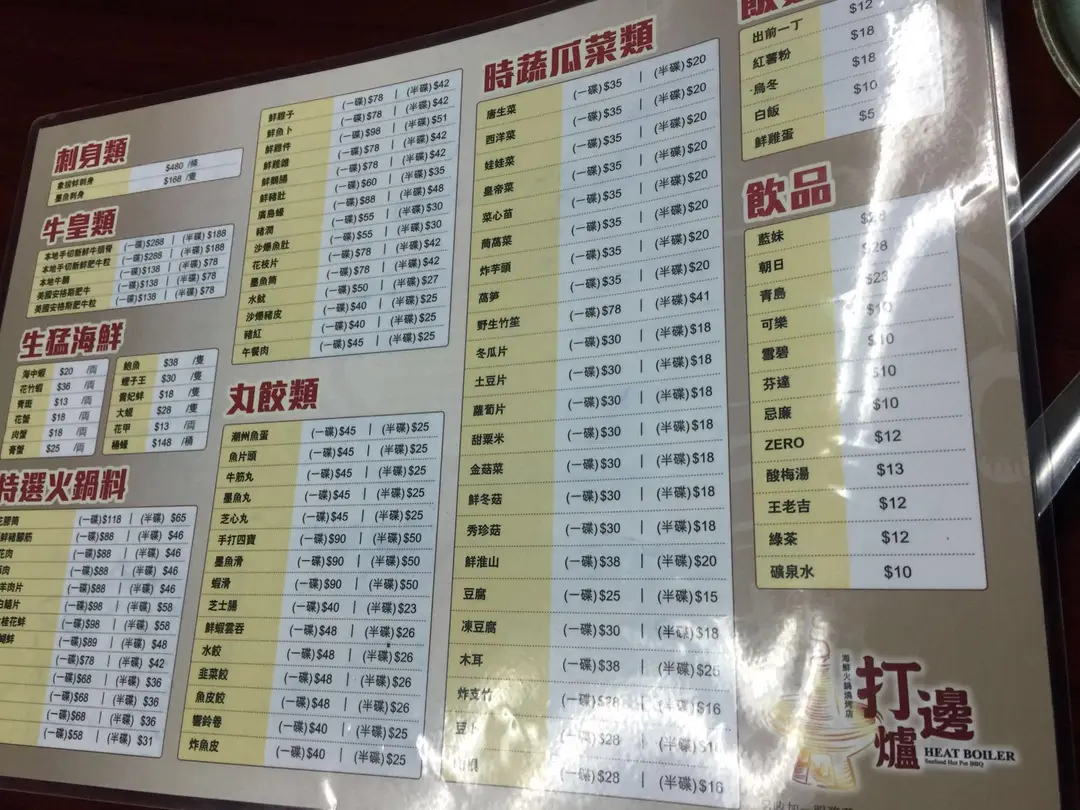 刺身類
象拔蚌刺身 $480 /桶
墨魚刺身 $168 /隻
牛皇類
本地手切新鮮牛頸脊 (一碟)$288 | (半碟)$188
本地手切新鮮肥牛粒 (一碟)$288 | (半碟)$188
本地牛𦟌 (一碟)$138 | (半碟)$78
美國安格斯肥牛 (一碟)$138 | (半碟)$78
美國安格斯肥牛粒 (一碟)$138 | (半碟)$78
生猛海鮮
海中蝦 $20 /両
花竹蝦 $36 /両
青衣 $13 /両
花蟹 $18 /両
肉蟹 $18 /両
青蟹 $25 /両
鮑魚 $38 /隻
蟶子王 $30 /隻
貴妃蚌 $18 /隻
大蜆 $28 /隻
花甲 $13 /両
桶蠔 $148 /桶
特選火鍋料
花膠筒 (一碟)$118 | (半碟) $65
鮮豬腳筋 (一碟)$88 | (半碟) $46
花肉 (一碟)$88 | (半碟) $46
肉 (一碟)$88 | (半碟) $46
羊肉片 (一碟)$88 | (半碟) $46
片 (一碟)$98 | (半碟) $58
桂花蚌 (一碟)$98 | (半碟) $58
蚌 (一碟)$89 | (半碟) $48
(一碟)$78 | (半碟) $42
(一碟)$68 | (半碟) $36
(一碟)$68 | (半碟) $36
(一碟)$68 | (半碟) $36
(一碟)$58 | (半碟) $31
鮮雞子 (一碟)$78 | (半碟)$42
鮮魚卜 (一碟)$78 | (半碟)$42
鮮雞件 (一碟)$98 | (半碟)$51
鮮雞雜 (一碟)$78 | (半碟)$42
鮮鵝腸 (一碟)$78 | (半碟)$42
鮮豬肚 (一碟)$60 | (半碟)$35
廣島蠔 (一碟)$88 | (半碟)$48
豬潤 (一碟)$55 | (半碟)$30
沙爆魚肚 (一碟)$55 | (半碟)$30
花枝片 (一碟)$78 | (半碟)$42
墨魚筒 (一碟)$78 | (半碟)$42
水魷 (一碟)$50 | (半碟)$27
沙爆豬皮 (一碟)$40 | (半碟)$25
豬紅 (一碟)$40 | (半碟)$25
午餐肉 (一碟)$45 | (半碟)$25
丸餃類
潮州魚蛋 (一碟)$45 | (半碟)$25
魚片頭 (一碟)$45 | (半碟)$25
牛筋丸 (一碟)$45 | (半碟)$25
墨魚丸 (一碟)$45 | (半碟)$25
芝心丸 (一碟)$45 | (半碟)$25
手打四寶 (一碟)$90 | (半碟)$50
墨魚滑 (一碟)$90 | (半碟)$50
蝦滑 (一碟)$90 | (半碟)$50
芝士腸 (一碟)$40 | (半碟)$23
鮮蝦雲吞 (一碟)$48 | (半碟)$26
水餃 (一碟)$48 | (半碟)$26
韭菜餃 (一碟)$48 | (半碟)$26
魚皮餃 (一碟)$48 | (半碟)$26
響鈴卷 (一碟)$40 | (半碟)$25
炸魚皮 (一碟)$40 | (半碟)$25
時蔬瓜菜類
唐生菜 (一碟)$35 | (半碟)$20
西洋菜 (一碟)$35 | (半碟)$20
娃娃菜 (一碟)$35 | (半碟)$20
皇帝菜 (一碟)$35 | (半碟)$20
菜心苗 (一碟)$35 | (半碟)$20
茼萵菜 (一碟)$35 | (半碟)$20
炸芋頭 (一碟)$35 | (半碟)$20
萵筍 (一碟)$35 | (半碟)$20
野生竹笙 (一碟)$78 | (半碟)$41
冬瓜片 (一碟)$30 | (半碟)$18
土豆片 (一碟)$30 | (半碟)$18
蘿蔔片 (一碟)$30 | (半碟)$18
甜粟米 (一碟)$30 | (半碟)$18
金菇菜 (一碟)$30 | (半碟)$18
鮮冬菇 (一碟)$30 | (半碟)$18
秀珍菇 (一碟)$30 | (半碟)$18
鮮淮山 (一碟)$38 | (半碟)$20
豆腐 (一碟)$25 | (半碟)$15
凍豆腐 (一碟)$30 | (半碟)$18
木耳 (一碟)$38 | (半碟)$25
炸支竹 (一碟)$28 | (半碟)$16
豆卜 (一碟)$28 | (半碟)
(一碟)$28 | (半碟)$16
出前一丁 $12
紅薯粉 $18
烏冬 $18
白飯 $10
鮮雞蛋 $5
飲品
藍妹 $28
朝日 $28
青島 $23
可樂 $10
雪碧 $10
芬達 $10
忌廉 $10
ZERO $12
酸梅湯 $13
王老吉 $12
綠茶 $12
礦泉水 $10
海鮮火鍋燒烤店
打邊爐
HEAT BOILER
Seafood Hot Pot BBQ